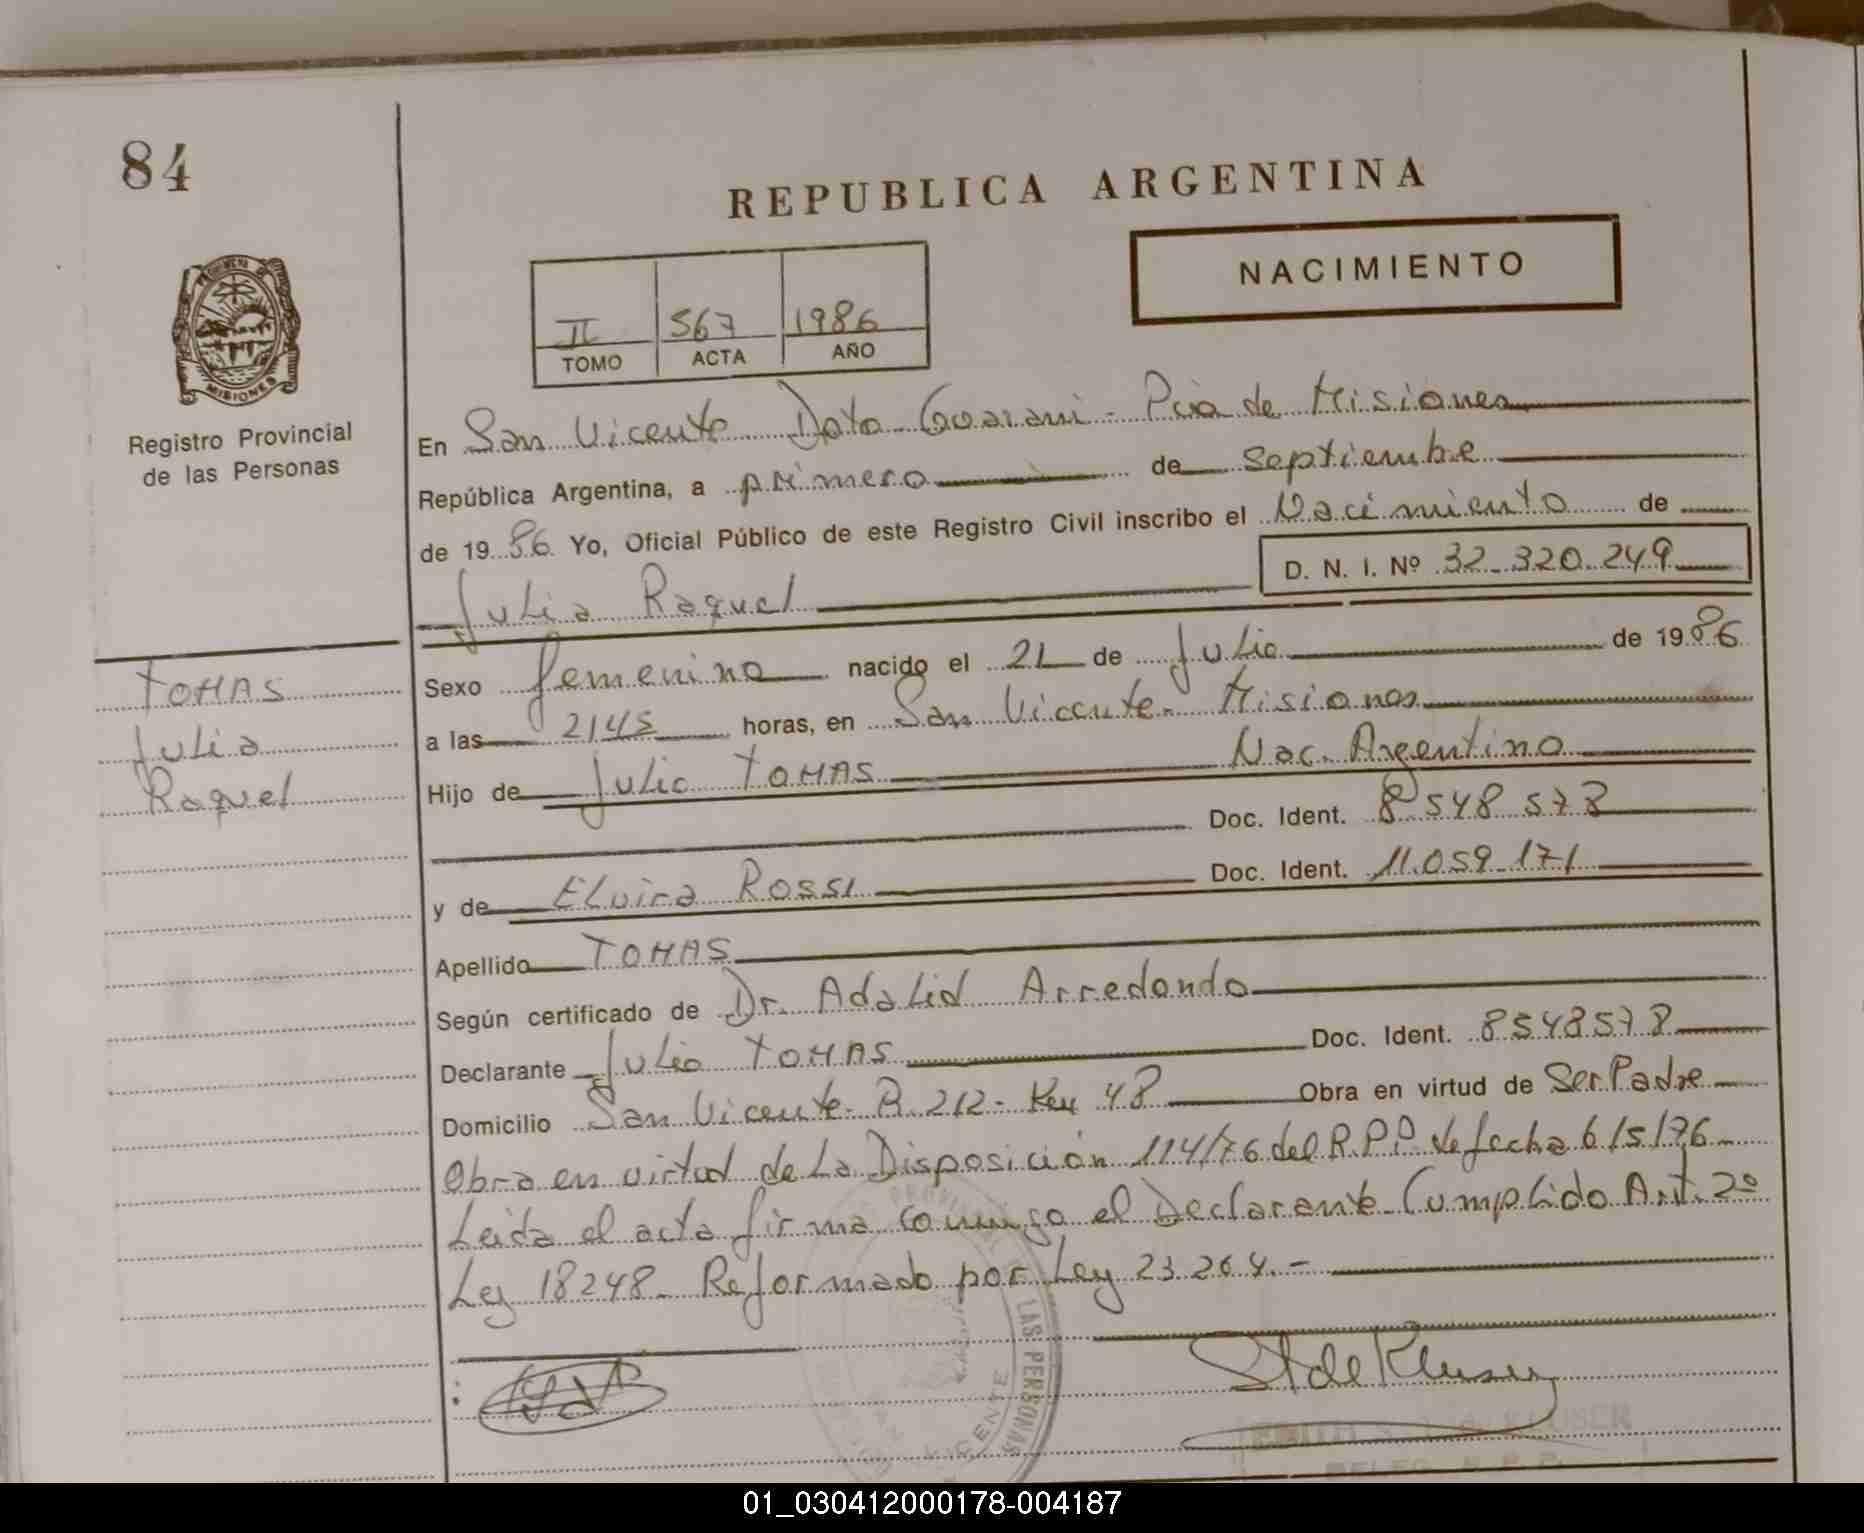 84
REPUBLICA ARGENTINA
NACIMIENTO
II 567 1986
TOMO ACTA AÑO
PROVINCIA DE
MISIONES
Registro Provincial
de las Personas
En San Vicente Dpto Guarani - Pcia de Misiones
República Argentina, a primero de Septiembre
de 1986 Yo, Oficial Público de este Registro Civil inscribo el Nacimiento de
D. N. I. Nº 32.320.249
Julia Raquel
TOMAS
Julia
Raquel
Sexo femenino nacido el 21 de Julio de 1986
a las 2145 horas, en San Vicente - Misiones
Hijo de Julio TOMAS Nac. Argentino
Doc. Ident. 8.548.578
y de Elvira Rossi Doc. Ident. 11.059.171
Apellido TOMAS
Según certificado de Dr. Adalid Arredondo
Declarante Julio TOMAS Doc. Ident. 8548578
Domicilio San Vicente - R. 212 - Km 48 Obra en virtud de Ser Padre
Obra en virtud de La Disposición 114/76 del R.P.P. de fecha 6/5/76
Leida el acta firma conmigo el Declarante - Cumplido Art. 2º
Ley 18248 - Reformado por Ley 23.264.-
PROVINCIAL DE LAS PERSONAS
VICENTE
St de Kluser
KLUSER
DELEG. R.P.P.
01_030412000178-004187